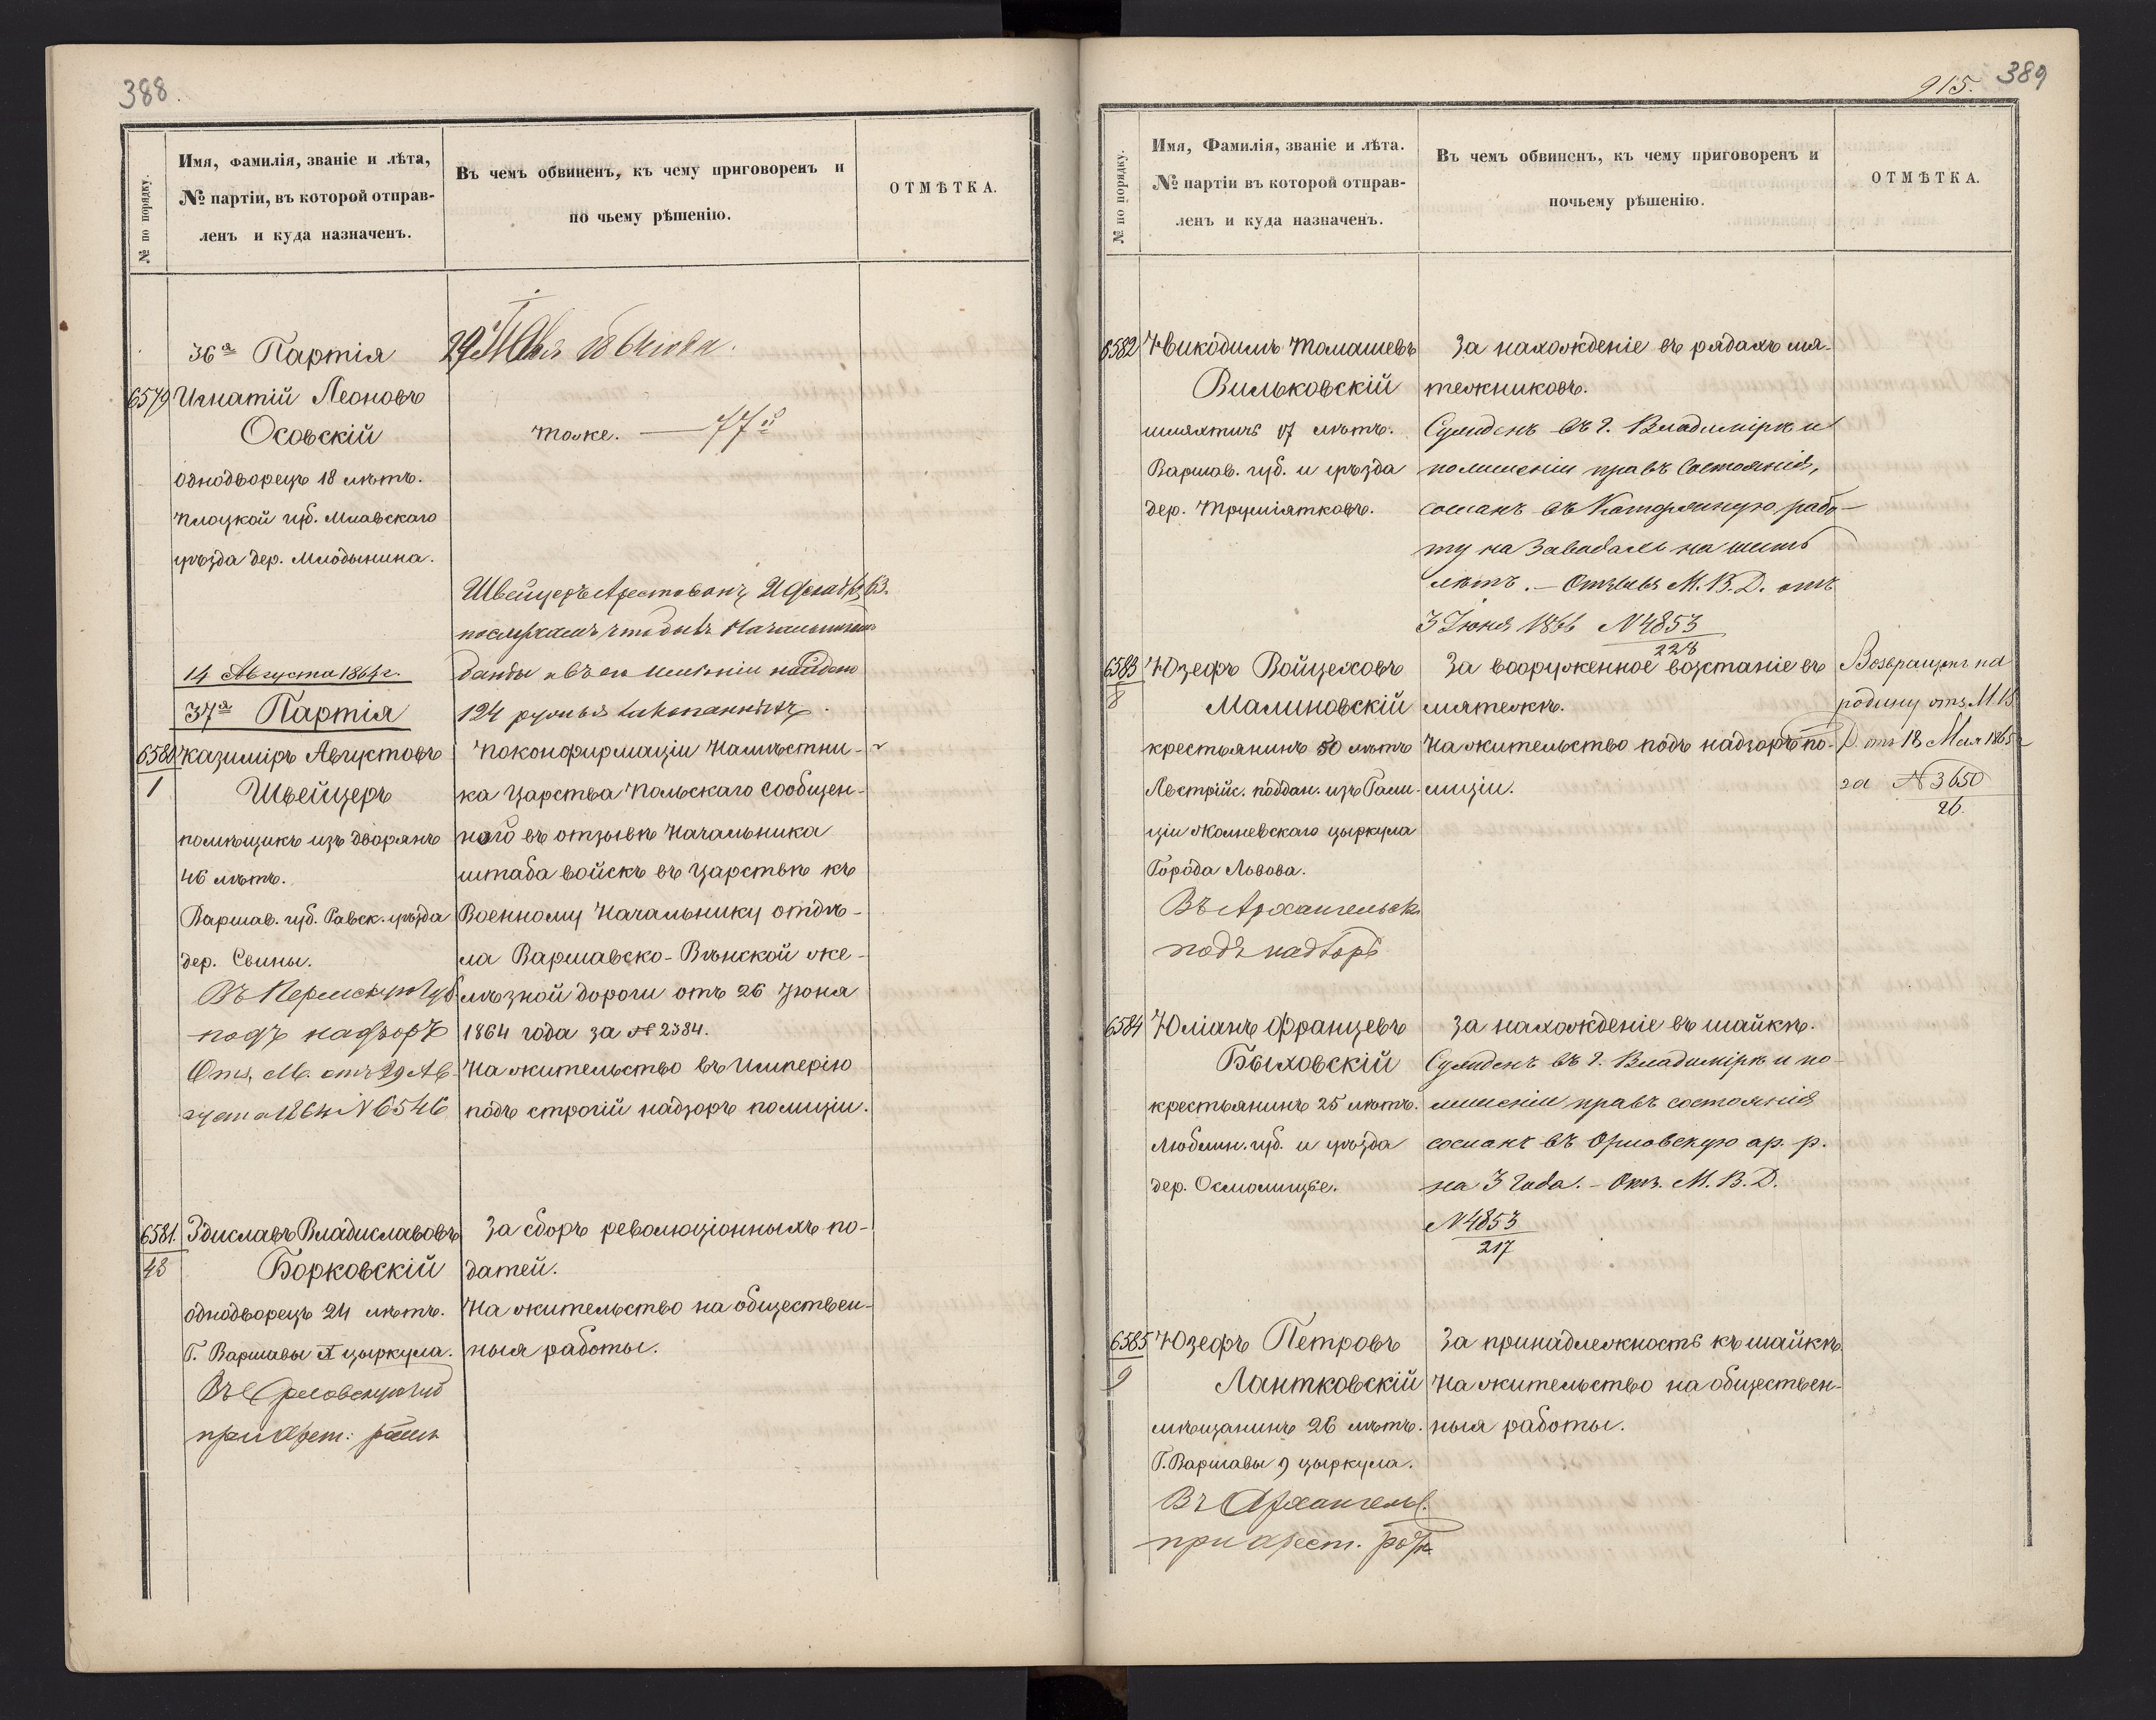 388.
№ по порядку.
Имя, фамилія, званіе и лѣта,
№ партіи, въ которой отправ-
ленъ и куда назначенъ.
Въ чемъ обвиненъ, къ чему приговоренъ и
по чьему рѣшенію.
ОТМѢТКА.
36я Партія
6579 Игнатій Леоновъ
Осовскій
однодворецъ 18 лѣтъ.
Плоцкой губ. Млавскаго
уѣзда дер. Млодынина.
тоже.
Швейцеръ Арестованъ
14 Августа 1864 г.
банды и въ его имѣніи найдено
37я Партія
124 ружья
6580
1
Казиміръ Августовъ
Швейцеръ
помѣщикъ изъ дворянъ
46 лѣтъ.
Варшав. губ. Равск. уѣзда
дер. Свины.
Въ Пермскую губ.
подъ надзоръ
От. М. отъ 29 Ав-
густа 1864 N 6546
По конфирмаціи Намѣстни-
ка Царства Польскаго сообщен-
ного въ отзывѣ Начальника
штаба войскъ въ Царствѣ къ
Военному Начальнику отдѣ-
ла Варшавско-Вѣнской же-
лѣзной дороги отъ 26 Іюня
1864 года за № 2384.
На жительство въ Имперію
подъ строгій надзоръ полиціи.
6581.
43
Здиславъ Владиславовъ
Борковскій
однодворецъ 24 лѣтъ.
Г. Варшавы цыркула.
Въ Орловскую губ
при Арест: ротѣ
За сборъ революціонныхъ по-
датей.
На жительство на обществен-
ныя работы.
915. 389
№ по порядку.
Имя, Фамилія, званіе и лѣта.
№ партіи въ которой отправ-
ленъ и куда назначенъ.
Въ чемъ обвиненъ, къ чему приговоренъ и
почьему рѣшенію.
ОТМѢТКА.
6582
Никодимъ Томашевъ
Вильковскій
шляхтичъ 17 лѣтъ.
Варшав. губ. и уѣзда
дер.
За нахожденіе въ рядахъ мя-
тежниковъ.
Сужденъ въ г. Владимірѣ и
по лишеніи правъ состоянія,
сосланъ въ Каторжную рабо-
ту на Заводахъ на шесть
лѣтъ. – Отзывъ М. В. Д. отъ
3 Іюня 1866 N 4853
228
6583
8
Юзефъ Войцеховъ
Малиновскій
крестьянинъ 50 лѣтъ
Австрійск. поддан. изъ Гали-
ціи Жолкевскаго цыркула
Города Львова.
Въ Архангельск.
подъ надзоръ
За вооруженное возстаніе въ
мятежѣ.
На жительство подъ надзоръ по-
лиціи.
Возвращенъ на
родину отз. М. В.
Д. отъ 18 Мая 1865
за № 3650
26.
6584
Юліанъ Францевъ
Быховскій
крестьянинъ 25 лѣтъ.
Люблин. губ. и уѣзда
дер. Осмолицѣ.
За нахожденіе въ шайкѣ.
Сужденъ въ г. Владимірѣ и по
лишеніи правъ состоянія
сосланъ въ Орловскую ар. р.
на 3 года. – Отз. М. В. Д.
N 4853
217
6585
9
Юзефъ Петровъ
Лантковскій
мѣщанинъ 26 лѣтъ.
Г. Варшавы 9 цыркула.
Въ Архангельс.
при арест. ротѣ
За принадлежность къ шайкѣ
На жительство на обществен-
ныя работы.